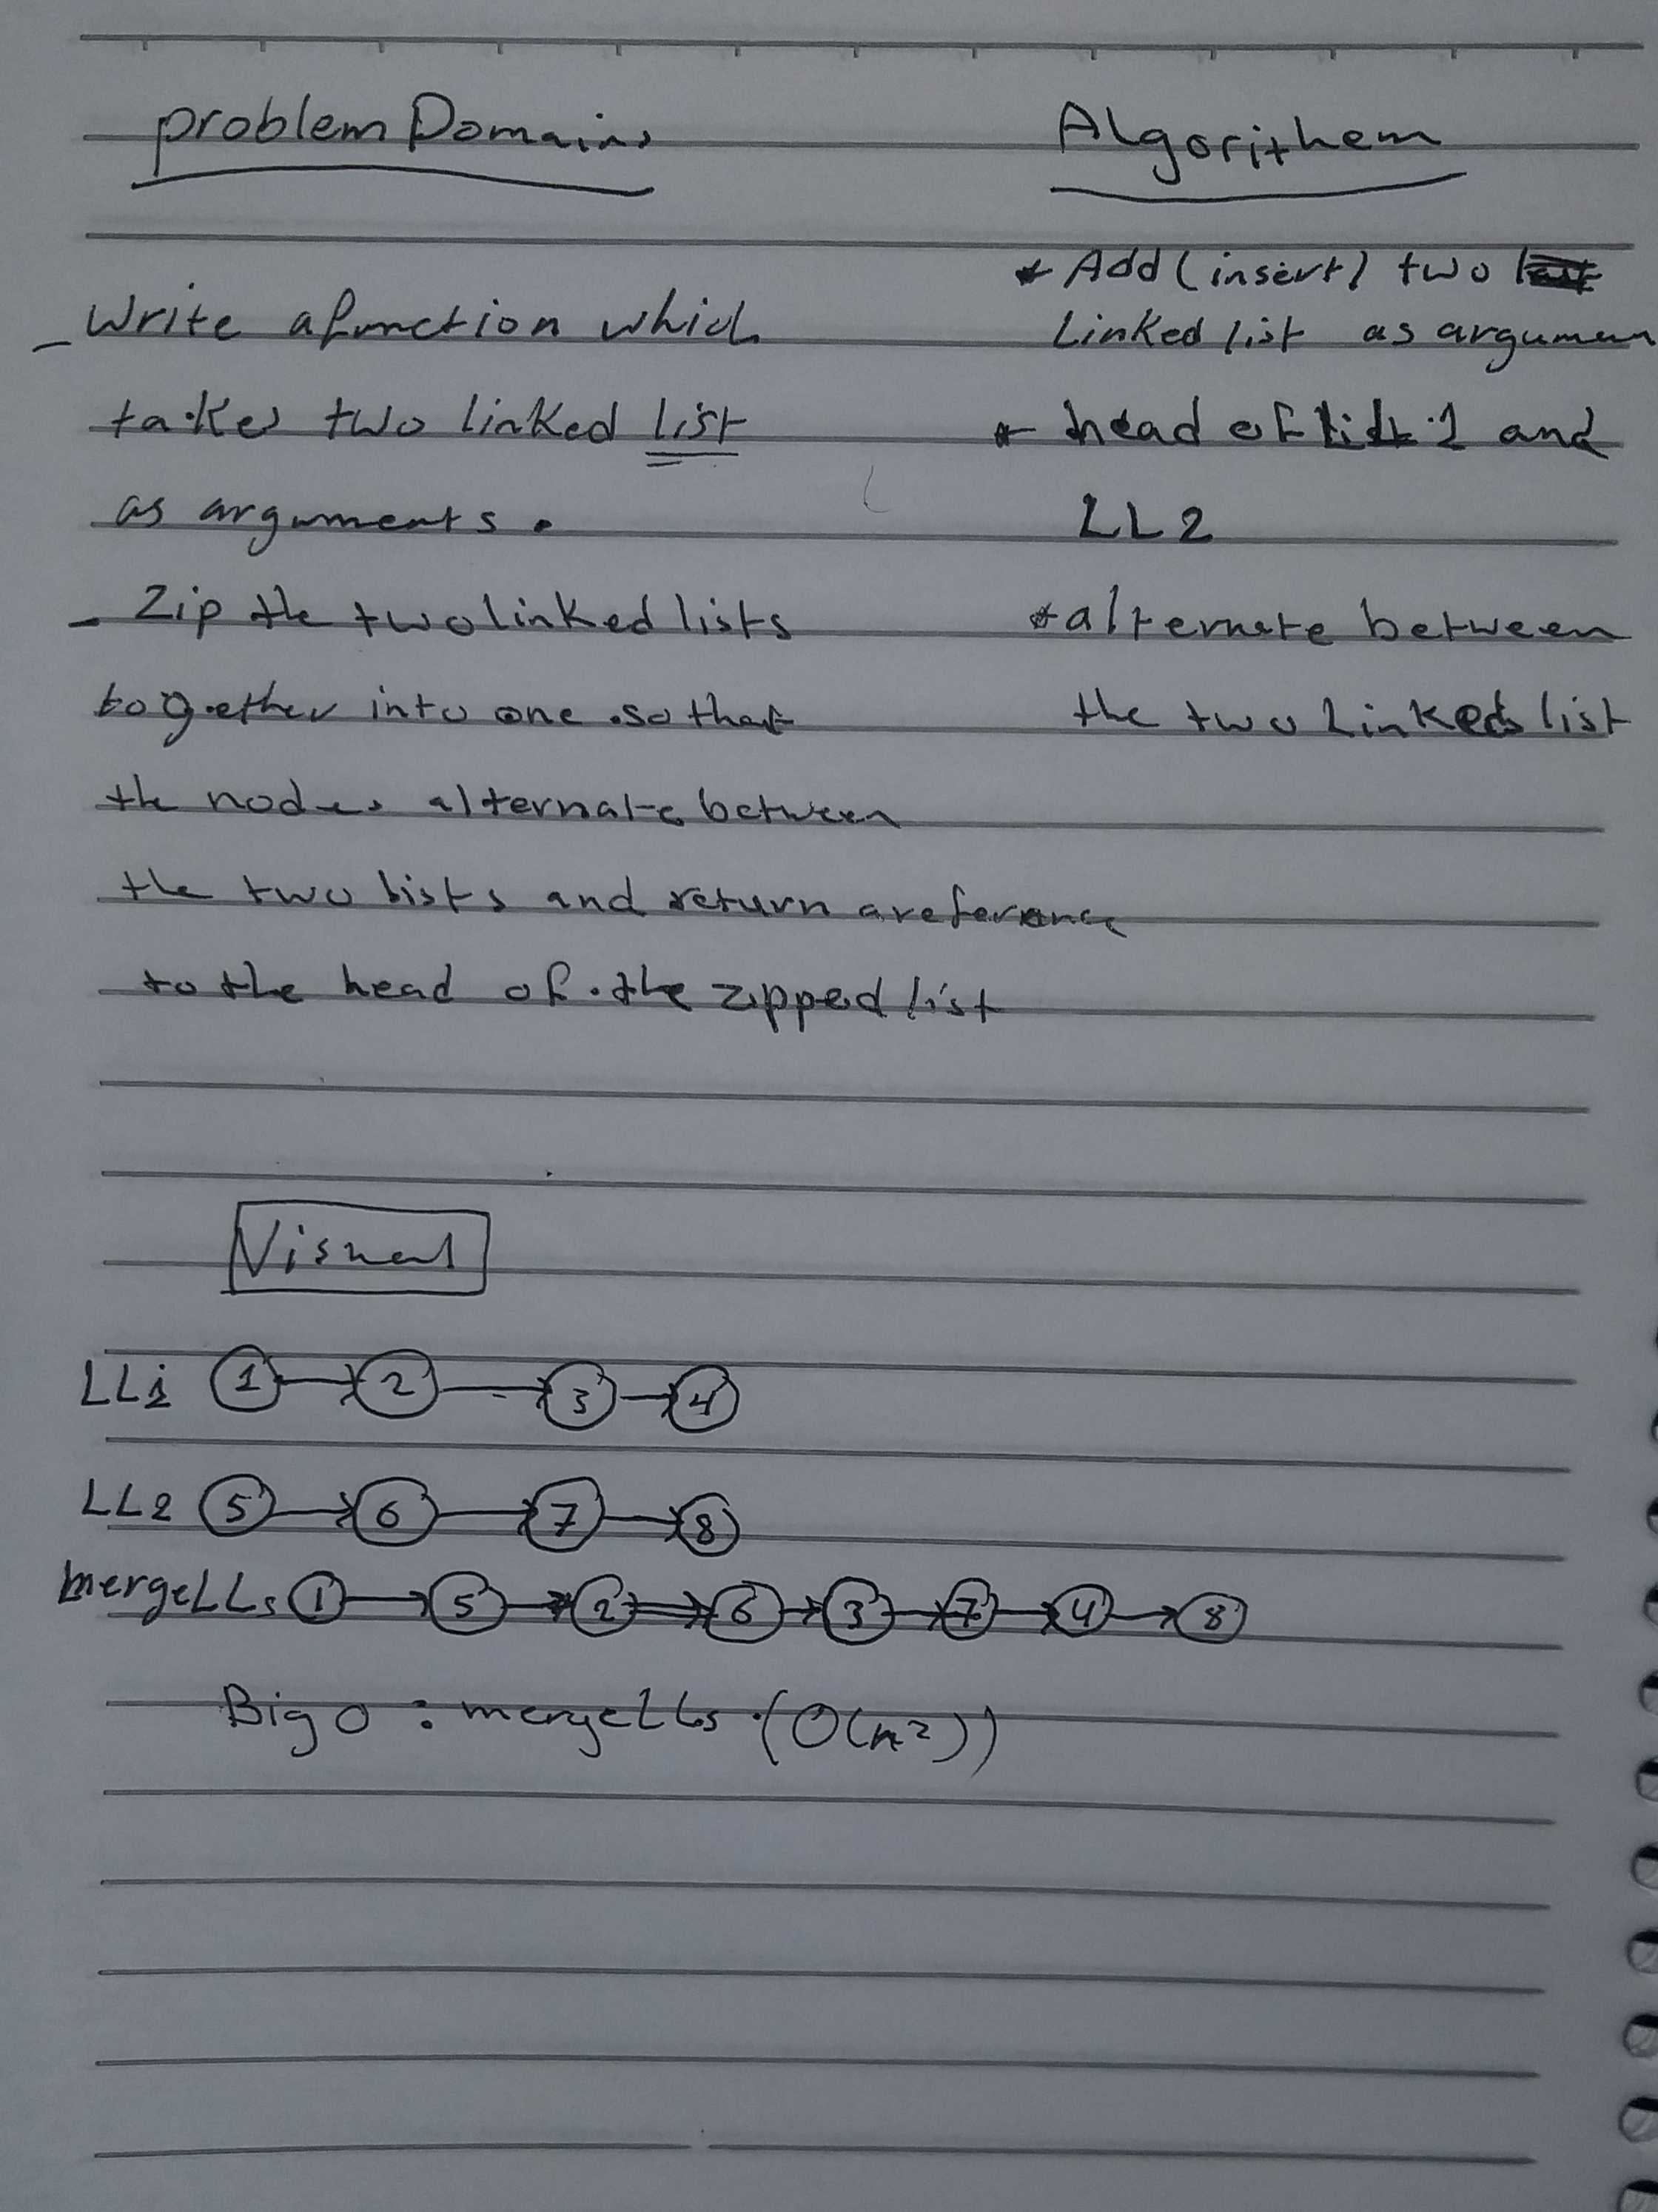 problem Domains
Write a function which
takes two linked list
as arguments.
- Zip the two linked lists
together into one so that
the nodes alternate between
the two lists and return a reference
to the head of the zipped list
Algorithem
* Add (insert) two
Linked list as argumen
* head of 1 and
LL2
* alternate between
the two Linked list
Visual
LL1 1 2 3 4
LL2 5 6 7 8
mergeLLs 1 5 2 6 3 7 4 8
Big O : mergeLLs (O(n²))